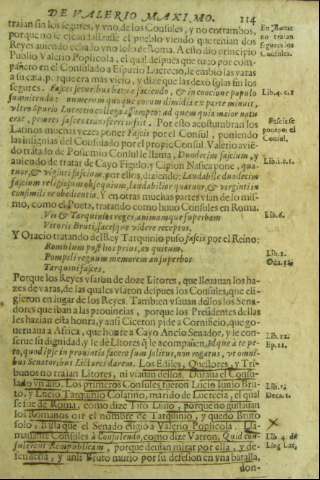 DE VALERIO MAXIMO. 114
traian sin los segures, y vno de los Consules, y no entrambos,
porque no se
Reyes auiendo echado vn solo de Roma. A esto dio principio
Publio Valerio Popicola, el qual despues que tuuo por com-
pañero en el Consulado a Espurio Lucrecio, le embio las varas
a su casa, porque era mas viejo, y dize que las dexo sin los
segures. Fasces iecoribus
numerus
vltro Spurio Lucretio collegae
erat, priores fasces transferre iussit. Por esto acostumbran los
Latinos muchas vezes poner Fascis por el Consul, poniendo
las insignias del Consulado por el propio Consul. Valerio auiẽ-
do tratado de Postumio Consul le llama, Duodecim fascium, y
auiendo de tratar de Cayo Figulo y Cipion Nasica pone, qua-
tuor, & viginti fascium, por ellos, diziendo: Laudabile duodecim
fascium religiosum obsequium, laudabilior quatuor, & viginti in
consimili re obedientia. Y en otras muchas partes vsan de lo mis-
mo, como el Poeta, tratando como huuo Consules en Roma.
Vis & Tarquinios reges, animamque superbam
Vltoris Bruti, fascesque videre receptos.
Y Oracio tratando del Rey Tarquinio puso fasces por el Reino:
Romulum post hos prius, an quietum,
Pompili regnum memorem an superbos
Tarquini fasces.
Porque los Reyes vsaron de doze Litores, que lleuauan los ha-
zes de varas, de las quales vsaron despues los Consules, que eli-
gieron en lugar de los Reyes. Tambien vsauan dellos los Sena-
dores que iban a las prouincias, porque los Presidentes dellas
les hazian esta honra, y assi Ciceron pide a Cornificio, que go-
uernaua a Africa, que honre a Cayo Anicio Senador, y le con-
serue su dignidad, y le dè Litores que le acompañen,
to, quod ipse in prouincia facere sum solitus, non rogatus, vt omni-
bus Senatoribus Lictores darem. Los Ediles, Questores, y Tri-
bunos no traian Litores, ni vsauan dellos. Duraua el Consu-
lado vn año. Los primeros Consules fueron Lucio Iunio Bru-
to, y Lucio Tarquinio Colatino, marido de Lucrecia, el qual
se fue de Roma, como dize Tito Liuio, porque no gustauan
los Romanos oir el nombre de Tarquinio, y quedò Bruto
solo, hasta que el Senado eligio a Valerio Poplicola. Lla-
maronse Consules à Consulendo, como dize Varron. Quid con-
sulerent Rempublicam, porque deuian mirar por ella, y de-
fenderla, y assi Bruto murio por su defension en vna batalla,
don-
En Roma
no traian
segures los
Consules.
Lib.4.c.1
Fasces se
pone por el
Consul.
Lib.1.c.1.
Lib.6.
Lib.1.
Oda.12.
Lib.12.
Ep.21.
Lib.1.
Deca.1.
Lib.4. de
Ling Lat.